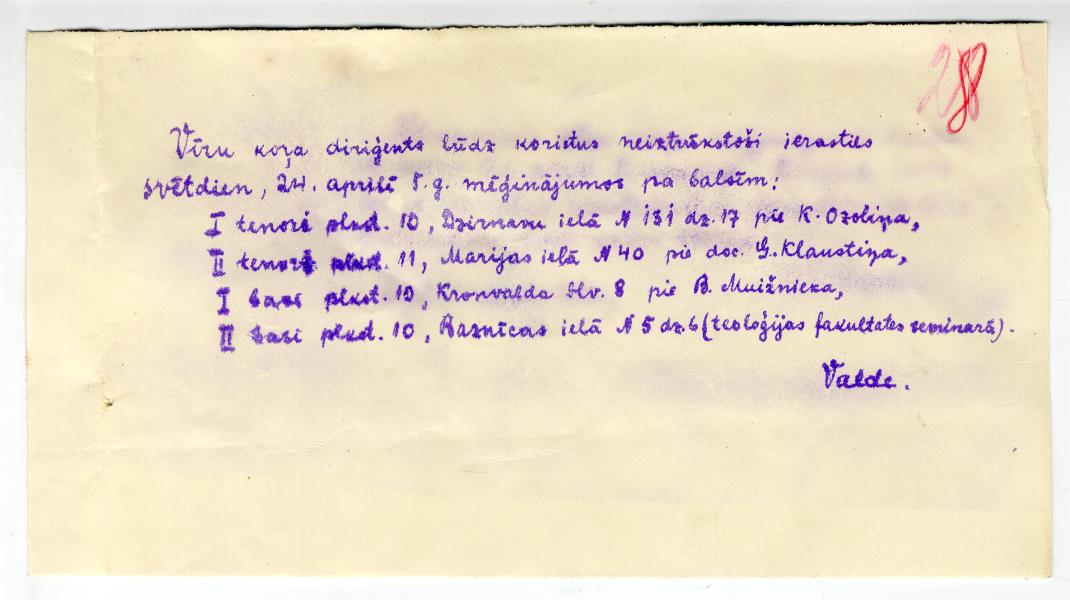 28
Vīru koŗa diriģents lūdz koristus neiztrūkstoši ierasties
svētdien, 24. aprilī š.g. mēģinājumos pa balsīm:
I tenori plkst. 10, Dzirnavu ielā N 131 dz. 17 pie K. Ozoliņa,
II tenori plkst. 11, Marijas ielā N 40 pie doc. G. Klaustiņa,
I basi plkst. 10, Kronvalda blv. 8 pie B. Muižnieka,
II basi plkst. 10, Baznīcas ielā N 5 dz. 6 (teoloģijas fakultates seminarā).
Valde.